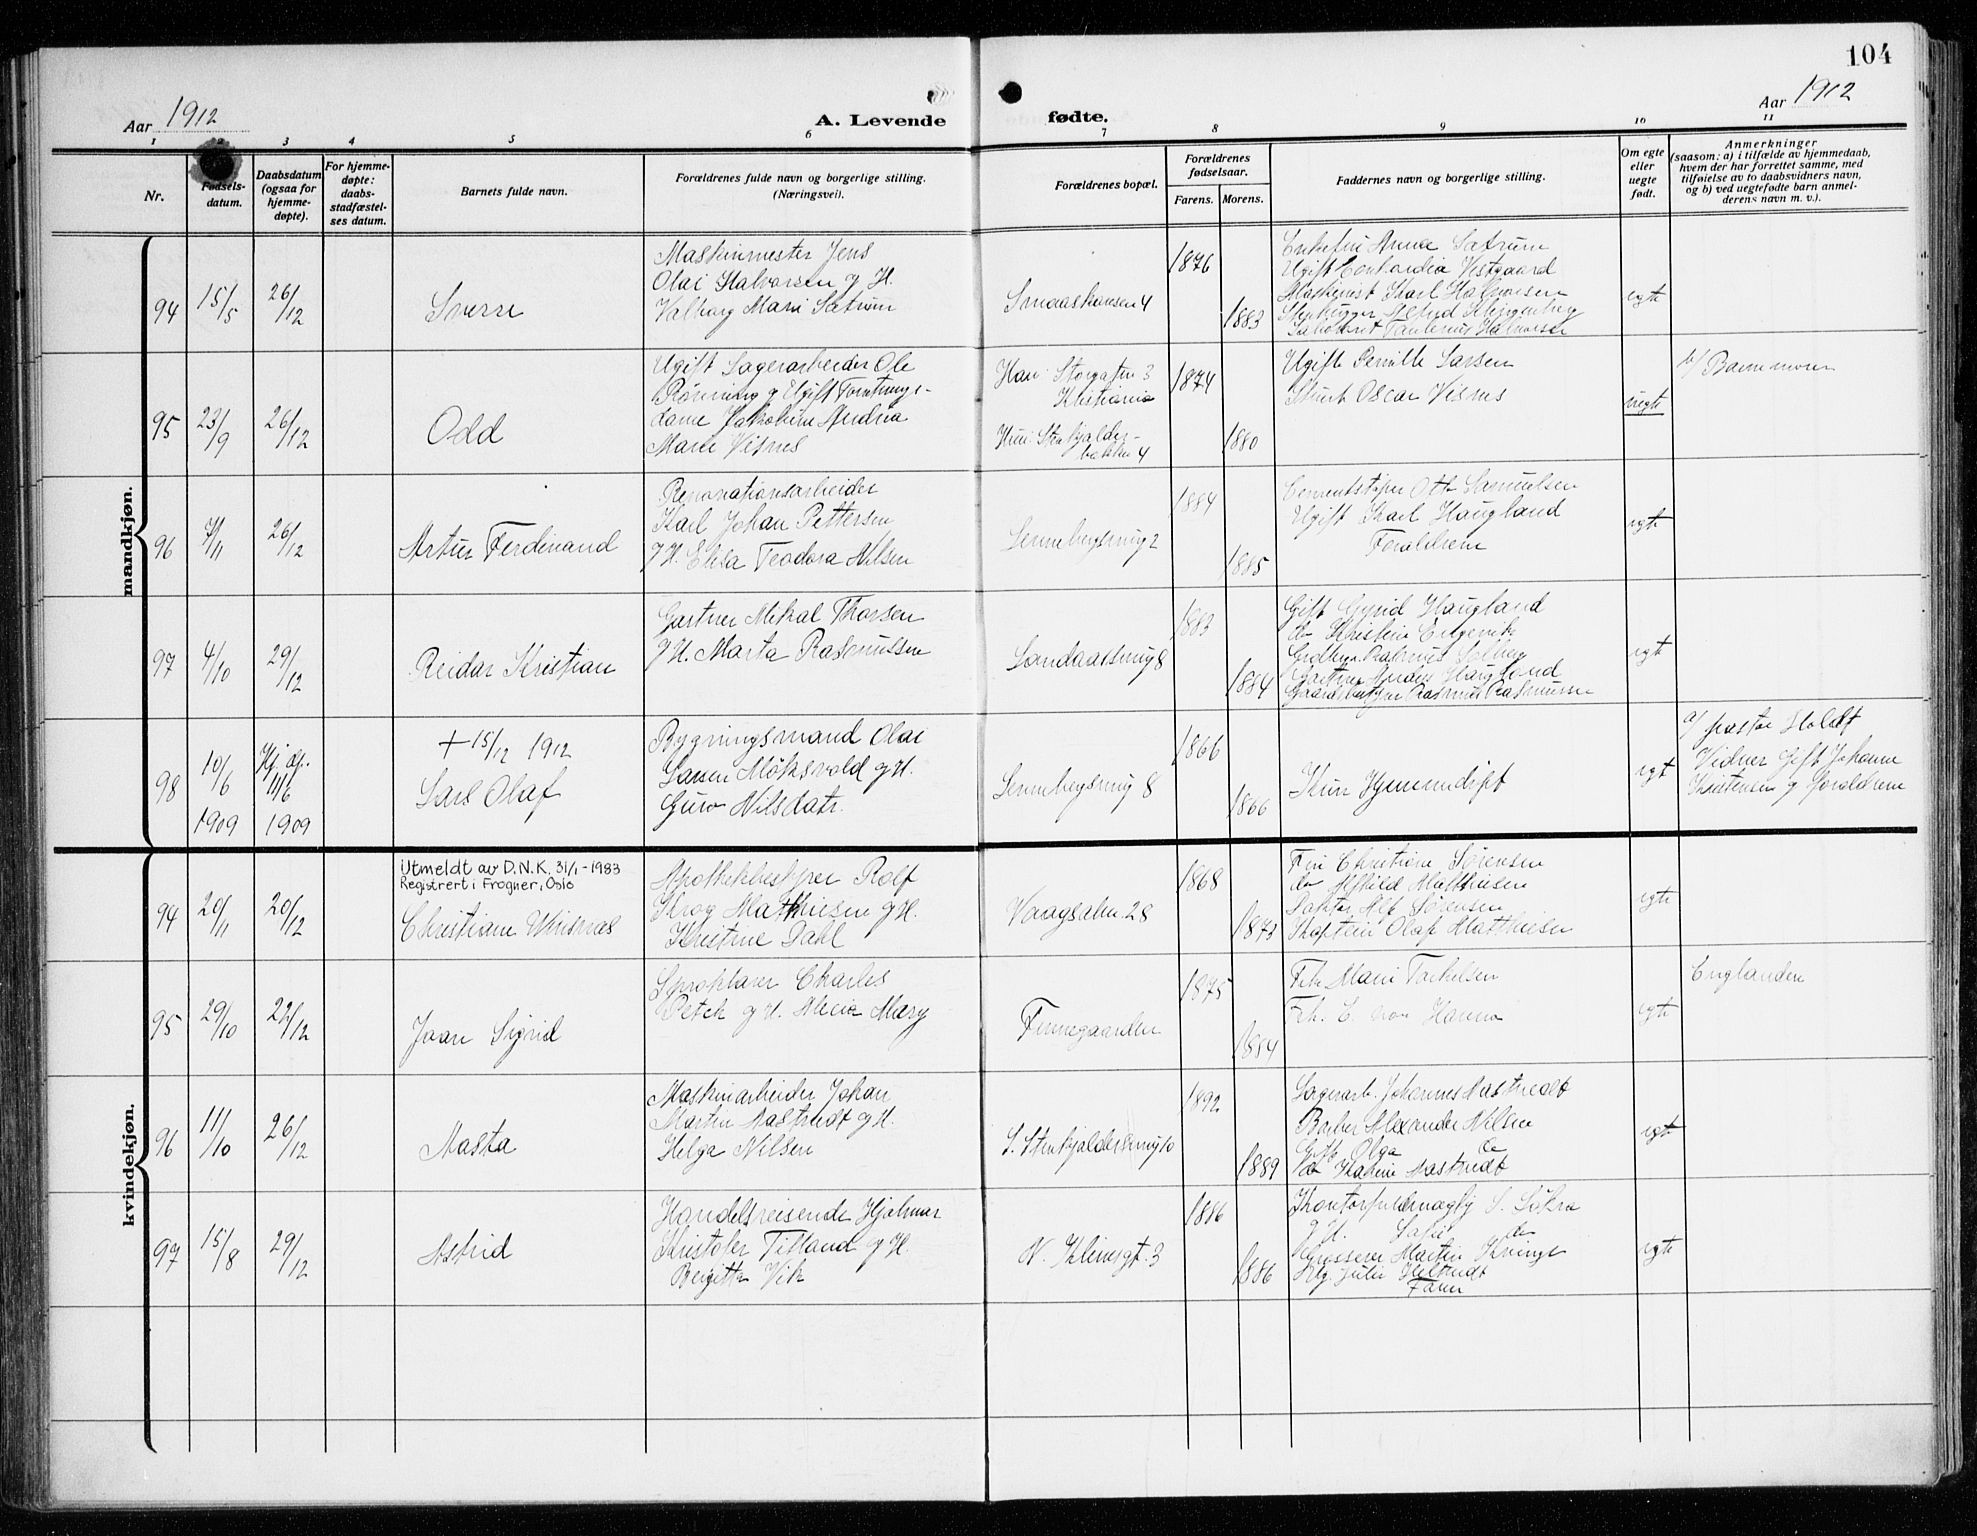 104
Aar 1912
A. Levende
fødte.
Aar 1912
1 2 3 4 5 6 7 8 9 10 11
Nr.
Fødsels-
datum.
Daabsdatum
(ogsaa for
hjemme-
døpte).
For hjemme-
døpte:
daabs-
stadfæstel-
ses datum.
Barnets fulde navn.
Forældrenes fulde navn og borgerlige stilling.
(Næringsvei).
Forældrenes bopæl.
Forældrenes
fødselsaar.
Farens. Morens.
Faddernes navn og borgerlige stilling.
Om egte
eller
uegte
født.
Anmerkninger
(saasom: a) i tilfælde av hjemmedaab,
hvem der har forrettet samme, med
tilføielse av to daabsvidners navn,
og b) ved uegtefødte barn anmel-
derens navn m. v.).
mandkjøn.
94 15/5 26/12
Sverre
Maskinmester Jens
Olai Halvorsen g H.
Valborg Marie Sætrum
Smaastransen 4
1876
1883
Enkefru Anna Sætrum
Ugift Conkordia Vestgaard
Maskinist Karl Halvorsen
egte
95 23/9 26/12
Odd
Ugift Lagerarbeider Ole
Rønning g Ugift Forretnings-
dame Jakobine Andrea
Marie Visnes
Han: Storgaten 3
Kristiania
Hun: Stenkjelder-
bakken 4
1874
1880
Ugifte Pernille Larsen
Stuert Oscar Visnes
uegte
b/ Barnemoren
96 7/11 26/12
Artur Ferdinand
Renovationsarbeider
Karl Johan Pettersen
g H. Elisa Teodora Nilsen
1884
1885
Cementstøper Otto Samuelsen
Ugift Karl Haugland
Forældrene
egte
97 4/10 29/12
Reidar Kristian
Gartner Mikal Thorsen
g H. Marta Rasmussen
Landaasvei 8
1883
1884
Gift Gyrid Haugland
do Kristine
Rasmus Solberg
Gartner Anders Haugland
Rasmus Rasmussen
egte
98 10/6 1909
Hj. dp. 11/6 1909
+ 15/12 1912
Lars Olaf
Bygningsmand Olai
Larsen Møksvold g H.
Guro Nilsdatr.
1866
1866
Kun Hjemmedøpt
egt
a/ pastor Holdt
Vidner Gift Johanne
Kristensen g Forældrene
kvindekjøn.
94 20/11 20/12
Utmeldt av D.N.K. 31/1-1983
Registrert i Frogner, Oslo
Christiane
Apothekbestyrer Rolf
Krog Mathiesen g H.
Kristine Dahl
Vaagsalm. 28
1868
1873
Fru Christiane Sørensen
do Mathiesen
Doktor Alf Sørensen
Kaptein Olaf Matthiesen
egte
95 29/10 22/12
Joan Sigrid
Sproklærer Charles
Petch g H. Alicia Mary
Finnegaarden
1875
1884
Frk Marie Torkelsen
Frk. C. von Hanno
egte
Englændere
96 11/10 26/12
Aasta
Maskinarbeider Johan
Martin Aastvedt g H.
Helga Nilsen
S. Stenkjeldersmug 10
1892
1889
Lagerarb. Johannes Aastvedt
Barber Alexander Nilsen
Gift Olga do
do Aastvedt
egte
97 15/8 29/12
Astrid
Handelsreisende Hjalmar
Kristofer Titland g H.
Bergitte Vik
N. Kleivegt. 3
1886
1886
g H. do
Martin
Faren
egte